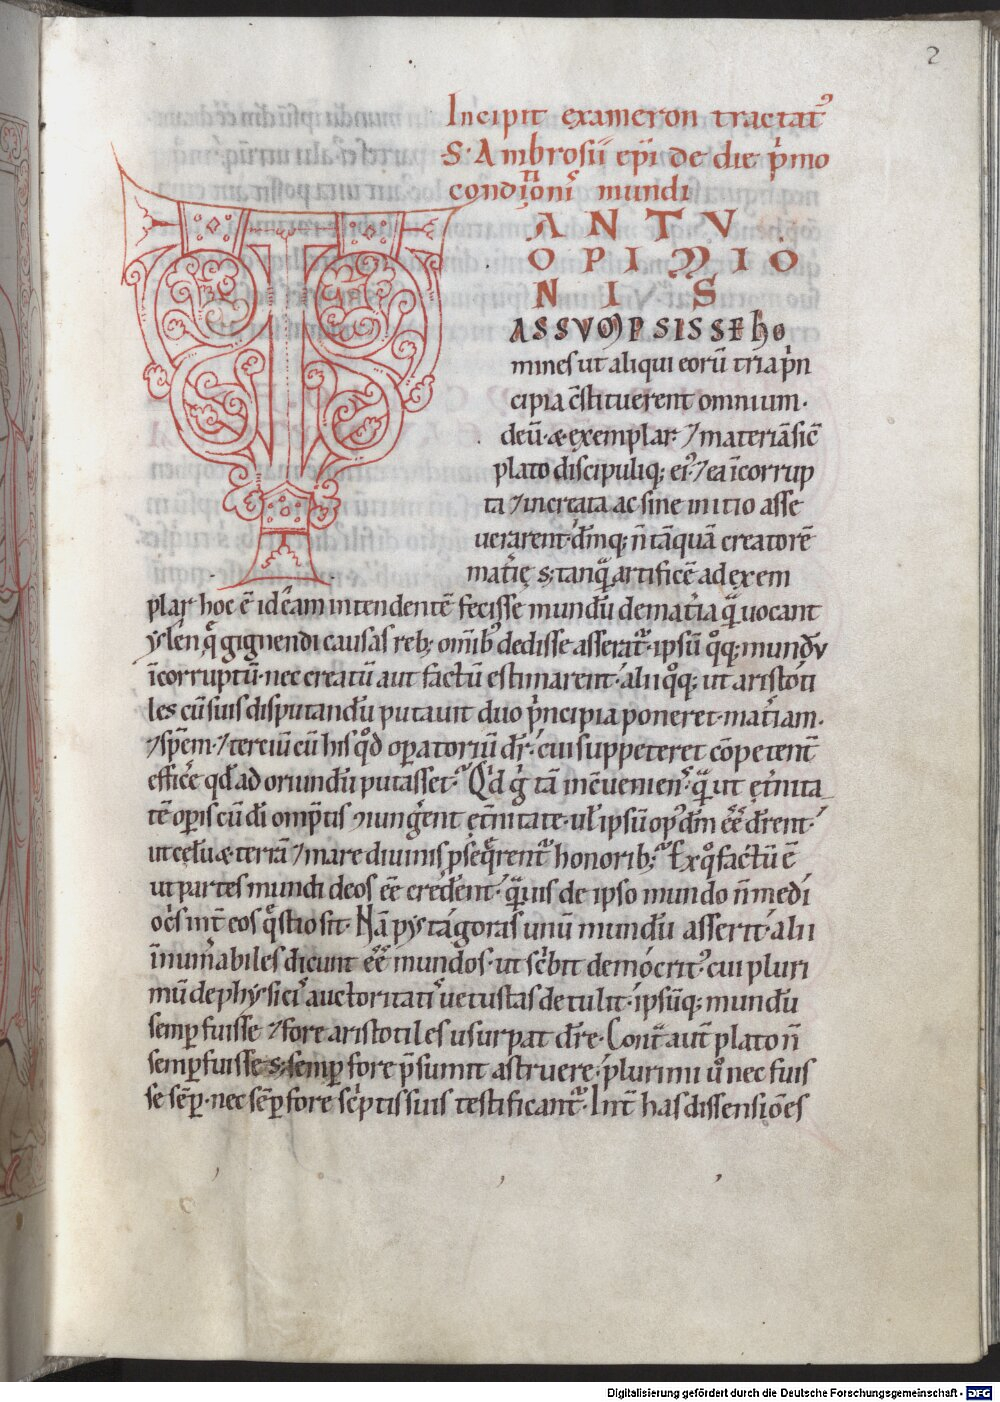 2
Incipit exameron tractatꝰ
S. Ambrosii ep̄i de die p̍mo
conditionis mundi
TANTV
OPIMIO
NIS
ASSVMPSISSE ho
mines ut aliqui eorū tria p̍n
cipia c̄stituerent omnium.
deū. & exemplar. ⁊ materiā sic̄
plato discipuliq; ei'. ⁊ ea īcorrup
ta ⁊ increata ac sine initio asse
uerarent. dm̄q; n̄ tāquā creatorē
mat̍ię s; tanquā artificē ad exem
plar hoc ē idēam intendentē fecisse mundū de mat̍ia quā uocant
ylen. quę gignendi causas reb; omīb' dedisse asserat̄. ipsū qͦq; mundū
īcorruptū. nec creatū aut factū estimarent. alii qͦq; ut aristoti
les cū suis disputandū putauit duo p̍ncipia poneret. mat̍iam.
⁊ sp̄em. ⁊ terciū cū his qͦd operatoriū dr̄. cui suppeteret cōpetent̄
efficere qd̄ adoriundū putasset. Qͥd g̍ tā incōueniens. quā ut et̄nita
tē op̄is cū di omp̄tis iungerent et̄nitate. ul' ipsū op' dm̄ ēē dr̄ent.
ut cęlū & terrā ⁊ mare diuinis p̄seqrent̄ honorib;. Ex qͦ factū ē
ut partes mundi deos ēē crederent. quāuis de ipso mundo n̄ medi
ocris int̄ eos questio sit. Nā pytagoras unū mundū asserit. alii
īnumabiles dicunt ēē mundos. ut sc̍bit democrit'. cui pluri
mū de physicis auctoritatis uetustas detulit. ipsūq; mundū
semp̄ fuisse ⁊ fore aristotiles usurpat dr̄e. Contra aut̄ plato n̄
semp̄ fuisse s; semp̄ fore p̄sumit astruere. plurimi uͦ nec fuis
se sēp̄. nec sēp̄ fore sc̍ptis suis testificant̄. Int̄ has dissensiōes
Digitalisierung gefördert durch die Deutsche Forschungsgemeinschaft - DFG